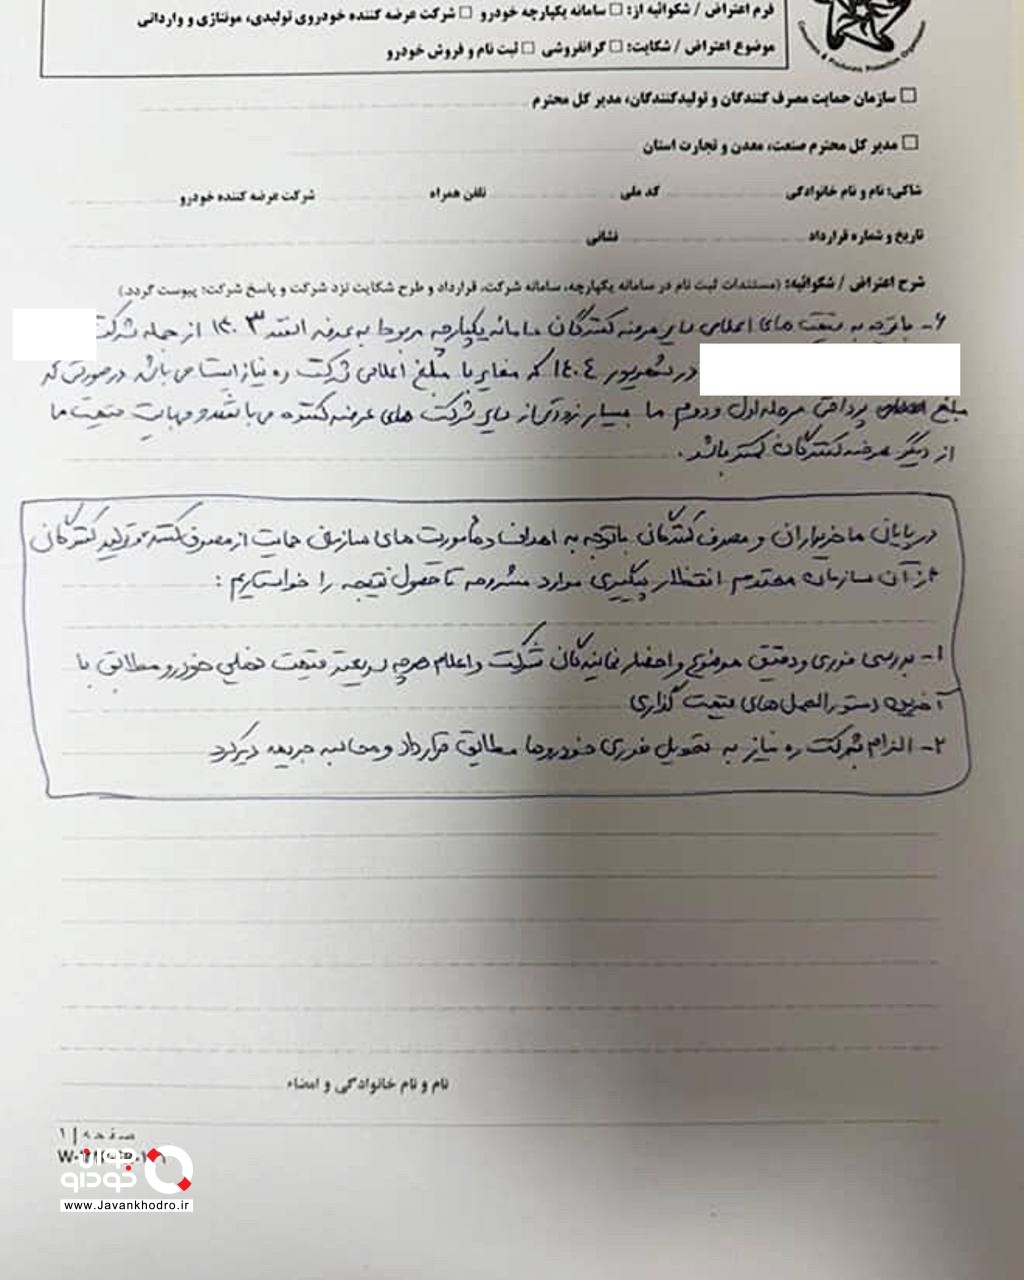 فرم اعتراض / شکوائیه از: □ سامانه یکپارچه خودرو □ شرکت عرضه کننده خودروی تولیدی، مونتاژی و وارداتی
موضوع اعتراض / شکایت: □ گرانفروشی □ ثبت نام و فروش خودرو
□ سازمان حمایت مصرف کنندگان و تولیدکنندگان، مدیر کل محترم
□ مدیر کل محترم صنعت، معدن و تجارت استان
شاکی: نام و نام خانوادگی کد ملی تلفن همراه شرکت عرضه کننده خودرو
تاریخ و شماره قرارداد نشانی
شرح اعتراض / شکوائیه: (مستندات ثبت نام در سامانه یکپارچه، سامانه شرکت، قرارداد و طرح شکایت نزد شرکت و پاسخ شرکت؛ پیوست گردد.)
۶- با توجه به قیمت های اعلامی سایر عرضه کنندگان سامانه یکپارچه مربوط به عرضه اسفند ۱۴۰۳ از جمله شرکت
در شهریور ۱۴۰۴ که مغایر با مبلغ اعلامی شرکت ره نیاز ایستا می باشد در صورتی که
مبلغ پرداختی مرحله اول و دوم ما بسیار زودتر از سایر شرکت های عرضه کننده می باشد و میبایست قیمت ما
از دیگر عرضه کنندگان کمتر باشد.
در پایان ما خریداران و مصرف کنندگان با توجه به اهداف و مأموریت های سازمان حمایت از مصرف کننده و تولید کنندگان
از آن سازمان محترم انتظار پیگیری موارد مشروحه تا حصول نتیجه را خواستاریم:
۱- بررسی فوری و دقیق موضوع و احضار نمایندگان شرکت و اعلام هرچه سریعتر قیمت قطعی خودرو مطابق با
آخرین دستورالعمل های قیمت گذاری
۲- الزام شرکت ره نیاز به تحویل فوری خودروها مطابق قرارداد و محاسبه جریمه دیرکرد
نام و نام خانوادگی و امضاء
صفحه | ۱
جوان خودرو
www.Javankhodro.ir